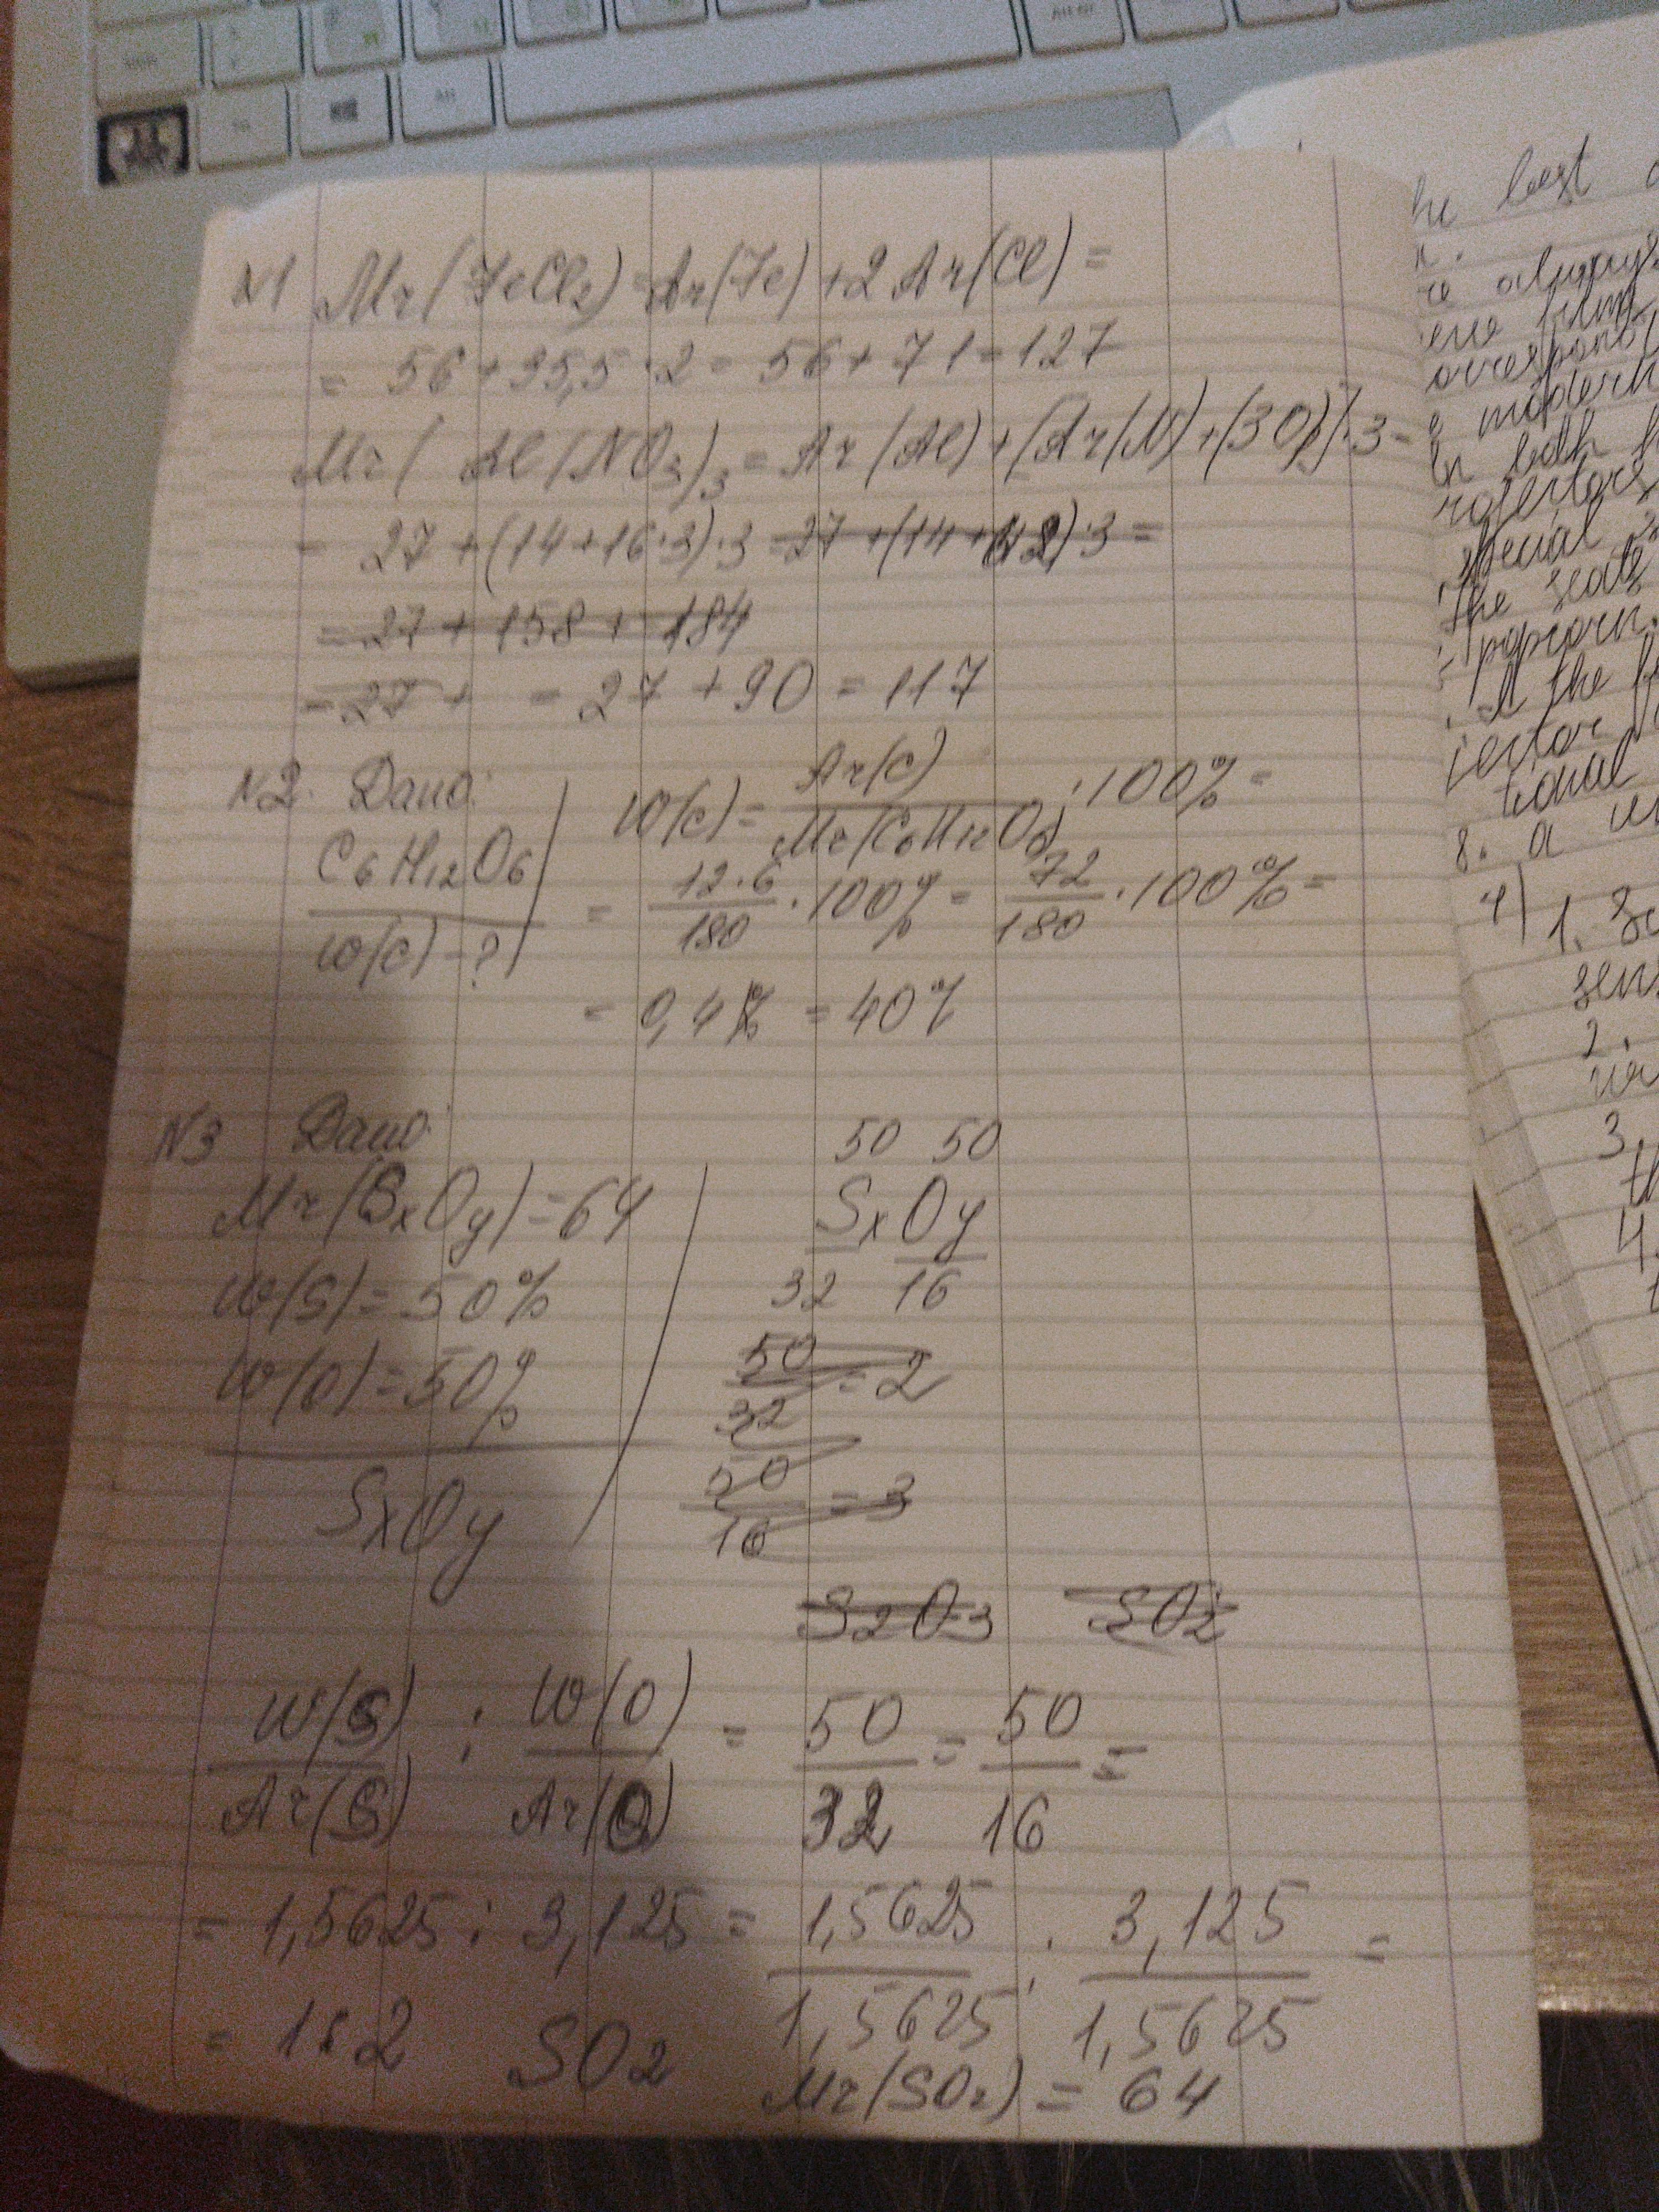 N1 Mr(FeCl₂)=Ar(Fe)+2Ar(Cl)=
= 56+35,5·2=56+71=127
Mr(Al(NO₃)₃=Ar(Al)+(Ar(N)+(3O))·3=
= 27+(14+16·3)·3=27+(14+48)·3=
=27+158+184
=27+ =27+90=117
N2. Дано:
C₆H₁₂O₆
W(C)-?
W(C)=Ar(C)/Mr(C₆H₁₂O₆)·100%=
= 12·6/180·100%=72/180·100%=
= 0,4% =40%
N3 Дано:
Mr(SxOy)=64
W(S)=50%
W(O)=50%
SxOy
50 50
SxOy
32 16
50/32=2
50/16=3
S₂O₃ SO₂
W(S)/Ar(S) : W(O)/Ar(O) = 50/32 = 50/16 =
= 1,5625 : 3,125 = 1,5625/1,5625 : 3,125/1,5625 =
= 1:2 SO₂
Mr(SO₂)=64
he best
always
modern
both
special
The seats
popcorn.
A the
tional
8. a
4) 1.
2.
3.
4.